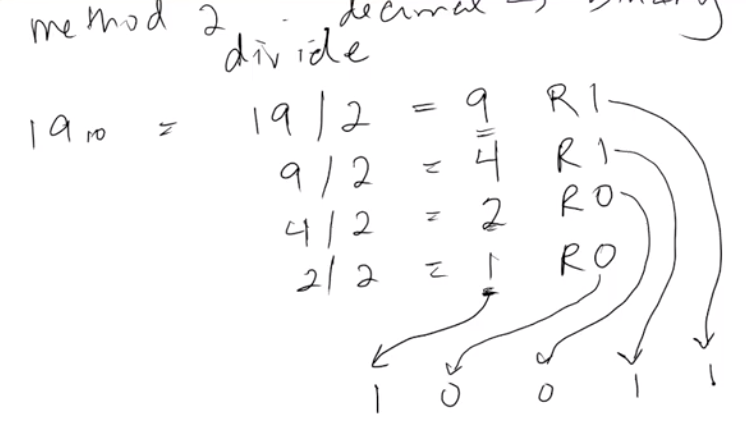 method 2 . decimal → binary
divide
19₁₀ = 19/2 = 9 R1
9/2 = 4 R1
4/2 = 2 R0
2/2 = 1 R0
1 0 0 1 1